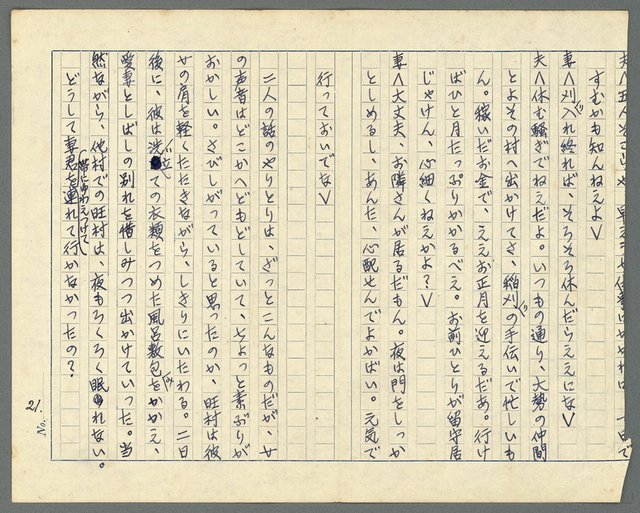 すむかも知んねえよ〉
妻〈刈入れ終れば、そろそろ休んだらええにな〉
夫〈休む騒ぎでねえだよ。いつもの通り、大勢の仲間
とよその村へ出かけてさ、稲刈の手伝いで忙しいも
ん。稼いだお金で、ええお正月を迎えるだあ。行け
ばひと月たっぷりかかるべえ。お前ひとりが留守居
じゃけん、心細くねえかよ?〉
妻〈大丈夫、お隣さんが居るだもん。夜は門をしっか
としめるし、あんた、心配せんでよかばい。元気で
行っておいでな〉
二人の話のやりとりは、ざっとこんなものだが、サ
の声音はどこかへどもどしていて、ちょっと素ぶりが
おかしい。さびしがっていると思ったのか、旺村は彼
サの肩を軽くたたきながら、しきりにいたわる。二日
後に、彼は洗い立ての衣類をつめた風呂敷包みをかかえ、
愛妻としばしの別れを惜しみつつ出かけていった。当
然ながら、他村での旺村は、夜もろくろく眠れない。
どうして妻君を連れて行かなかったの?
21.
No.